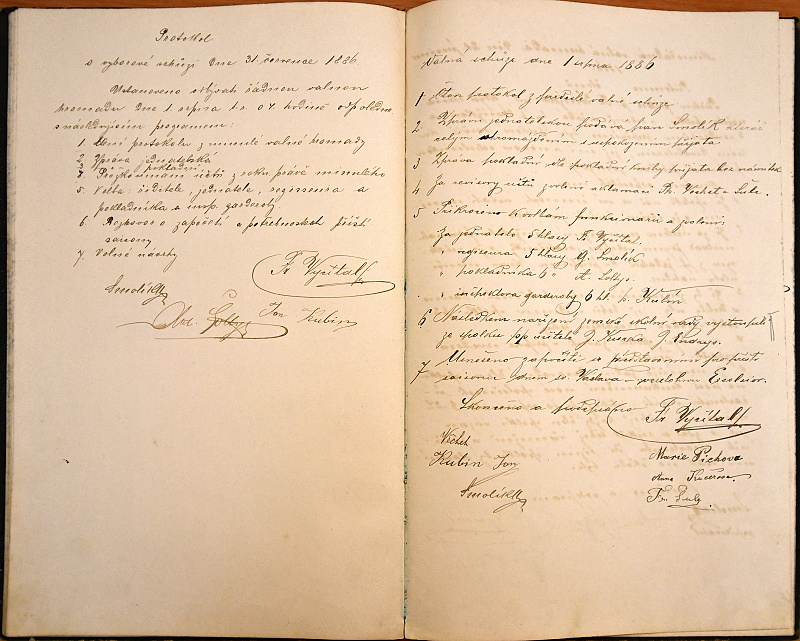 Protokol
o výborové schůzi dne 31. července 1886
Ustanoveno odbývati řádnou valnou
hromadu dne 1 srpna t.r. o 4 hodině odpoledne
s následujícím programem:
1 Čtení protokolu z minulé valné hromady
2 Zpráva jednatelská
3 " pokladní
4 účtů z roku právě minulého
5 Volba: ředitele, jednatele, regisseura a
pokladníka a insp. garderoby
6 Rozhovor o započetí a potřebnostech příští
saisony
7 Volné návrhy
Fr Vyčítal
Smolík
Ant. Šolty
Jan Kubín
Valná schůze dne 1 srpna 1886
1 Čten protokol z předešlé valné schůze
2 Zprávu jednatelskou podává pan Smolík která
celým shromážděním s uspokojením přijata
3 Zpráva pokladní dle pokladní knihy přijata bez námitek
4 Za revisory účtů zvoleni aklamací Vechet a
5 Přikročeno k volbám funkcionářů a zvoleni
Za jednatele 5 hlasy Fr Vyčítal
" regisseura 5 hlasy Smolík
" pokladníka 6 " A. Šolty
" inspektora garderoby 6 hl. p. Kubín
6 Následkem nařízení zemské školní rady vystoupili
ze spolku pp učitelé J. Kuska J.
7 Usneseno započíti s představeními pro příští
saisonu dnem sv. Václava
Skončeno a podepsáno
Fr Vyčítal
Vechet
Kubín Jan
Smolík
Marie Píchova
Anna Kučerova
Fr.